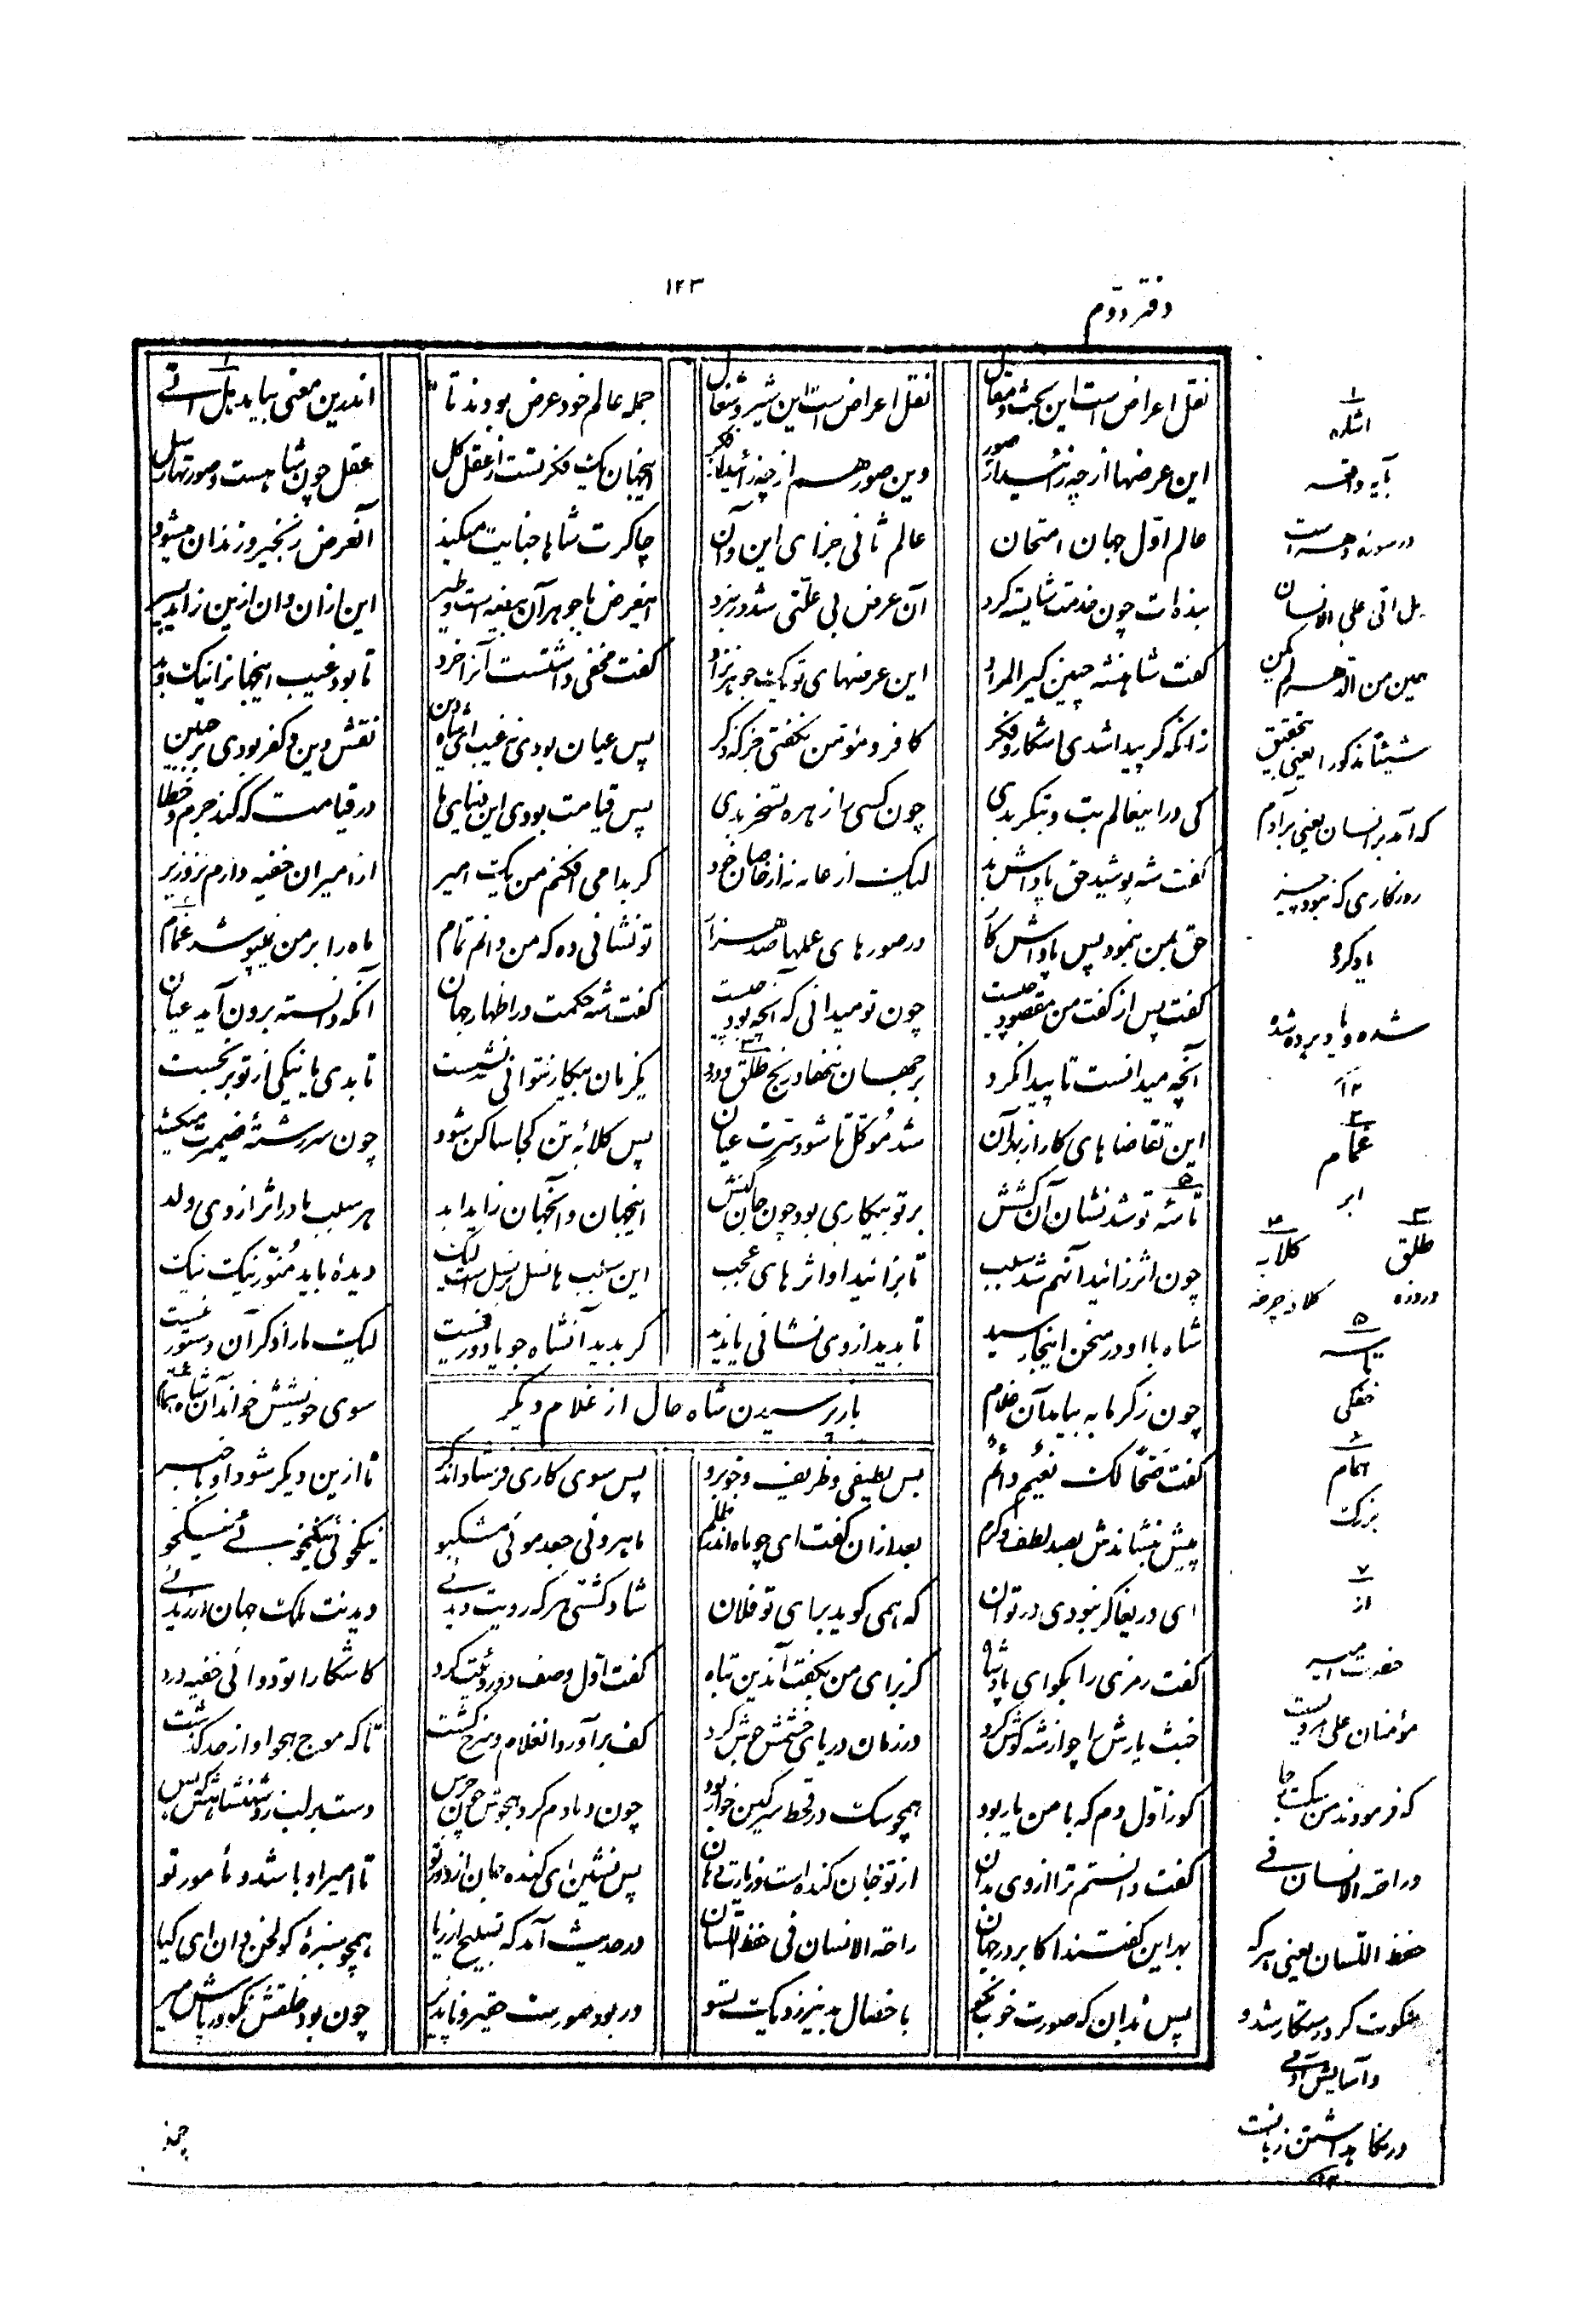 ۱۲۳
دفتر دوّم
نقل اعراض است این بحث و مقال	نقل اعراض است این شیر و شغال	جمله عالم خود عرض بودند تا	اندرین معنی بیامد هل اتی
این عرضها از چه زائید از صور	وین صور هم از چه زائید از فکر	اینجهان یک فکرتست از عقل کل	عقل چون شاهست و صورتها رسل
عالم اوّل جهان امتحان	عالم ثانی جزای این و آن	چاکرت شاها خیانت میکند	آنعرض زنجیر و زندان میشود
بنده ات چون خدمت شایسته کرد	آن عرض بی علّتی شد در نبرد	اینعرض با جوهر آن بیضه است و طیر	این ازان و ان ازین زاید بسیر
گفت شاهنشه چنین گیر المراد	این عرضهای تو یک جوهر نزاد	گفت مخفی داشتست آنرا خرد	تا بود غیب اینجهانرا نیک و بد
زانکه گر پیدا شدی اشکار فکر	کافر و مؤمن نگفتی جز که ذکر	پس عیان بودی نه غیب ای شاه دین	نقش دین و کفر بودی بر جبین
کی در اینعالم بت و بتگر بدی	چون کسی را زهره تسخر بدی	پس قیامت بودی این دنیای ما	در قیامت که کند جرم و خطا
گفت شه پوشید حق پاداش بد	لیک از عامه نه از خاصان خود	گر بدامی افکنم من یک امیر	از امیران خفیه دارم نز وزیر
حق بمن بنمود پس پاداش کار	در صورهای عملها صد هزار	تو نشانی ده که من دانم تمام	ماه را بر من نمیپوشد غمام
گفت پس از گفت من مقصود چیست	چون تو میدانی که آنچه بود چیست	گفت شه حکمت در اظهار جهان	آنکه دانسته برون آید عیان
آنچه میدانست تا پیدا نکرد	بر جهان ننهاد رنج طلق و درد	یکزمان بیکار نتوانی نشست	تا بدی یا نیکی از تو برنجست
این تقاضاهای کار از بهر آن	شد مُوکّل تا شود سرّت عیان	پس کلابه تن کجا ساکن شود	چون سررشتهٔ ضمیرت میکشد
تاسه تو شد نشان آن کشش	بر تو بیکاری بود چون جان کنش	اینجهان و آنجهان زاید ابد	هر سبب مادر اثر از وی ولد
چون اثر زائید آنهم شد سبب	تا بزائید او اثرهای عجب	این سببها نسل بر نسل است لیک	دیدهٔ باید مُنوّر نیک نیک
شاه با او در سخن اینجا رسید	تا بدید از وی نشانی یا ندید	گر بدید آنشاه جویا دور نیست	لیک ما را ذکر آن دستور نیست
باز پرسیدن شاه حال از غلام دیگر
چون ز گرمابه بیامد آن غلام	سوی خویشش خواند آن شاه همام
گفت صُحّاً لک نعیمٌ دائمٌ	بس لطیفی و ظریف و خوبرو	پس سوی کاری فرستاد اندگر	تا ازین دیگر شود او باخبر
پیش بنشاندش بصد لطف و کرم	بعد ازان گفت ای چو ماه اندر ظلم	ماهروئی جعد موئی مشکبو	نیکخوئی نیکخوئی نیکخو
ای دریغا گر نبودی در تو آن	که همی گوید برای تو فلان	شاد گشتی هر که رویت دیدئے	دیدنت ملک جهان ارزیدئے
گفت رمزی را بگو ای پادشاه	کز برای من بگفت آندین تباه	گفت اوّل وصف دوروئیت کرد	کاشکارا تو دوائی خفیه درد
خبث یارش را چو از شه گوش کرد	در زمان دریای خشمش جوش کرد	کف برآورد آنغلام و سرخ گشت	تا که موج هجو او از حد گذشت
کو ز اوّل دم که با من یار بود	همچو سگ در قحط سرگین خوار بود	چون دمادم کرد هجوش چون جرس	دست بر لب زد شهنشاهش که بس
گفت دانستم ترا از وی بدان	از تو جان گنده است وز یارت دهان	پس نشین ای گنده جان از دور تو	تا امیر او باشد و مأمور تو
بهر این گفتند اکابر در جهان	راحة الانسان فی حفظ اللسان	در حدیث آمد که تسبیح از ریا	همچو سبزهٔ گولخن دان ای کیا
پس بدان که صورت خوب نکو	با خصال بد نیرزد یک تسو	ور بود صورت حقیر و ناپذیر	چون بود خلقش نکو در پاش میر
۱
اشاره
بآیه وافی
هل اتی علی الانسان
حین من الدّهر لم یکن
شیئاً مذکورا یعنی بتحقیق
که آمد بر انسان یعنی بر آدم
روزگاری که نبود چیز
یاد کرده
شده و یاد برده شد
۱۲
۲
غمام
ابر
۳
طلق
دروزه
۴
کلابه
کلاف چرخه
۵
تاسه
خفگی
۶
همام
بزرگ
۷
از
حضرت امیر
مؤمنان علی مرویست
که فرمودند من سکت نجا
و راحة الانسان فی
حفظ اللّسان یعنی هر که
سکوت کرد رستگار شد و
و آسایش آدمی
در نگاهداشتن زبانست
۱۲